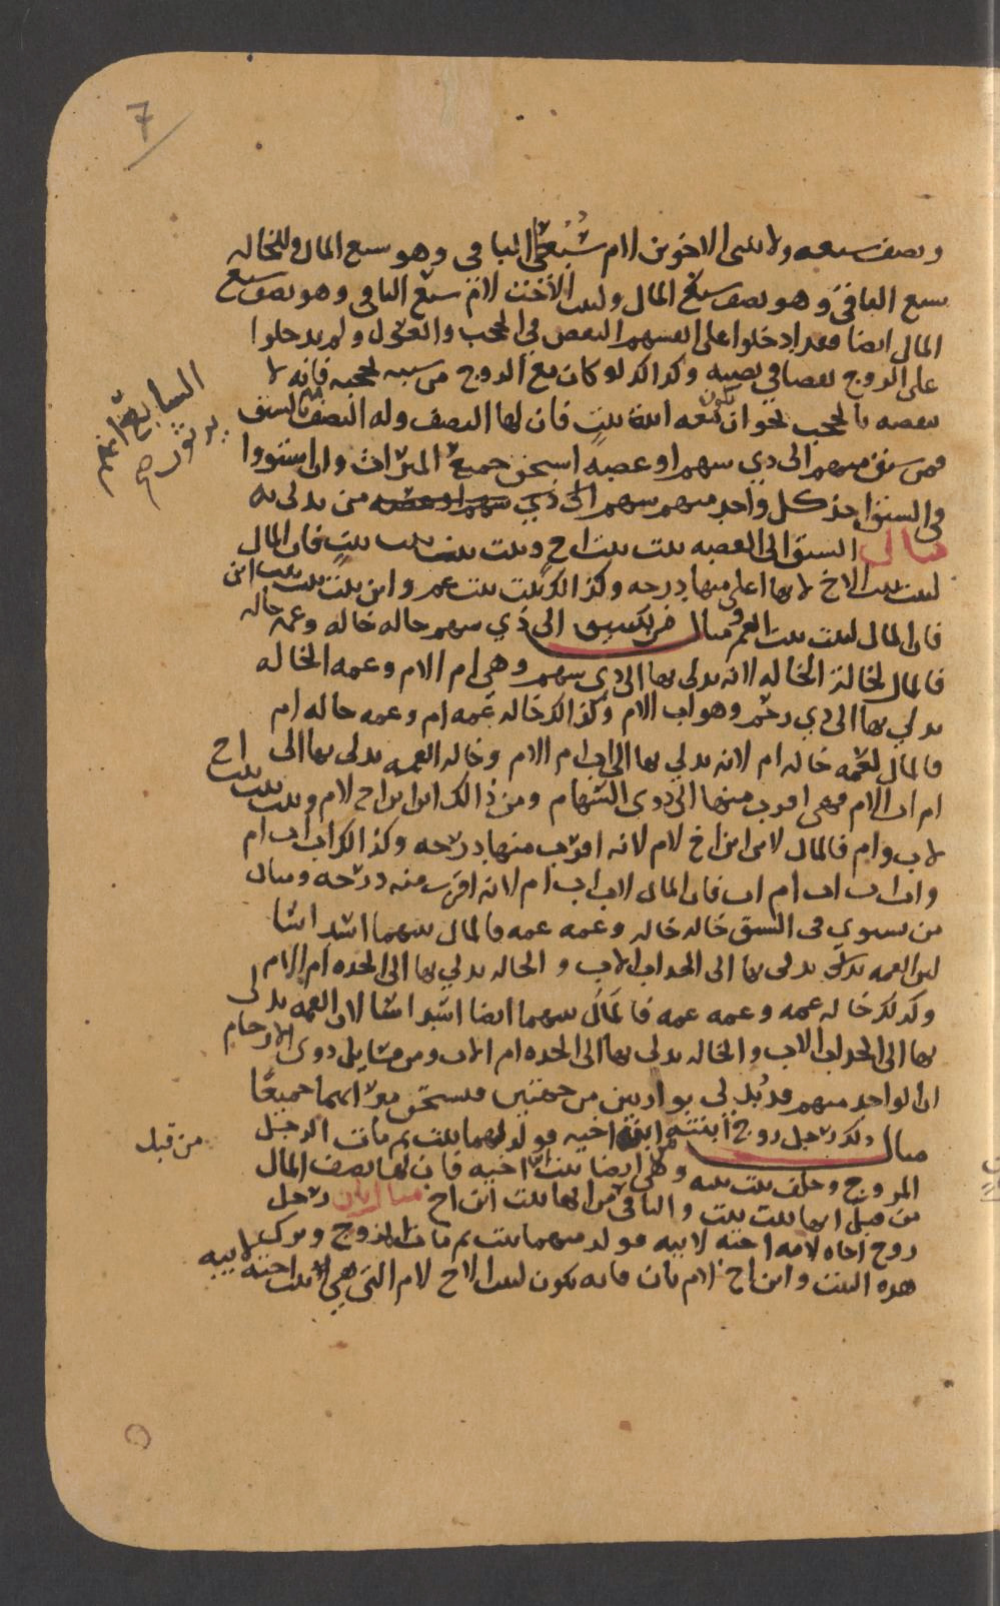 7
ونصف سبعه ولابنتى الاخوين الام سُبُعَى الباقى وهو سبع المال وللخاله
سبع الباقى وهو نصف سبع المال ولبنت الأخت الام سبع الباقى وهو نصف سبع
المال ايضا فقد ادخلوا على انفسهم البعض في الحجب والعول ولم يدخلوا
على الزوج نقصا في نصيبه وكذالك لو كان مع الزوج من سببه لحجبه فانه لا
ينقصه بالحجب نحو ان تكون معه ابنة بنت فان لها النصف وله النصف بالسبق
فمن سبق منهم الى ذي سهم او عصبه استحق جميع الميراث وان استووا
فى السبق اخذ كل واحد منهم سهم من يدلى به
مثال السبق الى العصبه بنت بنت اخ وبنت بنت بنت بنت فان المال
لبنت بنت الاخ لانها اعلى منها درجه وكذالك بنت بنت عم وابن بنت بنت بنت ابن
فان المال لبنت بنت العم ومثال من يسبق الى ذي سهم خاله خاله وعمه خاله
فالمال لخالة الخاله لانه يدلى بها الى ذى سهم وهى ام الام وعمه الخاله
يدلي بها الى ذي رحم وهو اب الام وكذالك خاله عمه ام وعمه خاله ام
فالمال لعمه خاله ام لانه يدلي بها الى اب ام الام وخاله العمه يدلى بها الى
ام اب الام فهى اقرب منها الى ذوى السهام ومن ذالك ابن ابن اخ لام وبنت بنت بنت اخ
لاب وام فالمال لابن ابن اخ لام لانه اقرب منها درجه وكذالك اب اب ام
واب اب اب ام اب فان المال لاب اب ام لانه اقرب منه درجه ومثال
من يستوي فى السبق خاله خاله وعمه عمه فالمال بينهما اثلاثا
لبن العمه يدلى بها الى الجد اب الاب والخاله يدلي بها الى الجده ام الام
وكذلك خاله عمه وعمه عمه فالمال بينهما ايضا اثلاثا لان العمه يدلى
بها الى الجد اب الاب والخاله يدلى بها الى الجده ام الاب ومن مسايل ذوى الارحام
ان الواحد منهم قد يُدلي بوارثين من جهتين فيستحق ميراثهما جميعًا
مثال ذلك رجل زوج ابنته ابن اخيه فولد لهما بنت ثم مات الرجل
المزوج وخلف بنت بنته وهى ايضا بنت ابن اخيه فان لها نصف المال
من قبل انها بنت بنت والباقى من انها بنت ابن اخ مثال ثان رجل
زوج اخاه لامه اخته لابيه فولد منهما بنت ثم مات الزوج وترك
هذه البنت وابن اخ لام ثان فانه يكون لبنت الاخ لام التى هي بنت اخته لابيه
من قبل